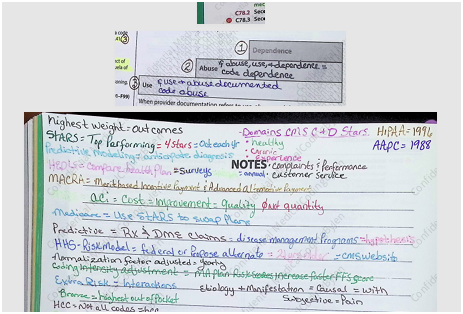 C78.2 Seco
C78.3 Seco
① Dependence
② Abuse if abuse, use, + dependence = code dependence
③ Use if use + abuse documented code abuse
When provider documentation refers to
highest weight = outcomes
STARS = Top Performing = 4 Stars = Oct each yr
Domains CMS C + D Stars.
HIPAA = 1996
AAPC = 1988
• healthy
• Chronic
• Experience
Predictive Modeling = anticipate diagnosis
NOTES • complaints & Performance
HEDIS = compare health plan = surveys
= annual • customer service
MACRA = Merit based Incentive Payment & Advanced alternative Payment
ACI = Cost = Improvement = quality Ø not quantity
Medicare = Use STARS to swap plans
Predictive = RX & DME claims = disease management programs
HHS-Risk model = federal or propose alternate = CMS website
Normalization factor adjusted = yearly
Coding intensity adjustment = MA plan risk scores increase faster FFS score
Extra Risk = Interactions
Etiology + Manifestation = Causal = with
Bronze = highest out of pocket
Subjective = Pain
HCC = Not all codes = HCC